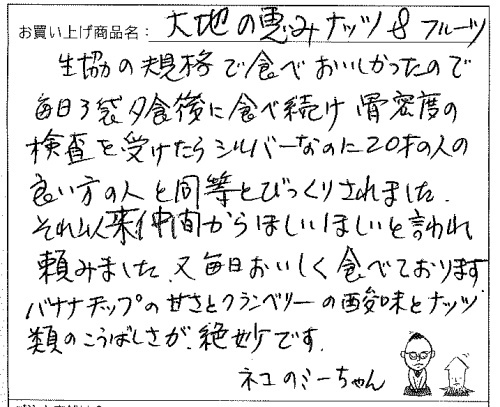 お買い上げ商品名：大地の恵みナッツ&フルーツ
生協の規格で食べおいしかったので
毎日3袋夕食後に食べ続け骨密度の
検査を受けたらシルバーなのに20才の人の
良い方の人と同等とびっくりされました.
それ以来仲間からほしいほしいと言われ
頼みました.又毎日おいしく食べております
バナナチップの甘さとクランベリーの酸味とナッツ
類のこうばしさが、絶妙です.
ネコのミーちゃん